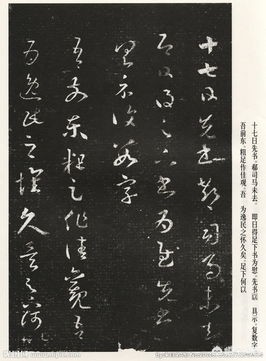 十七日先书郗司马未去
即日得足下书为慰先书
以具示复数字
吾前东粗足作佳观吾
为逸民之怀久矣足下何
十七日先书，郗司马未去。即日得足下书为慰。先书以具示，复数字。
吾前东，粗足作佳观。吾为逸民之怀久矣，足下何以